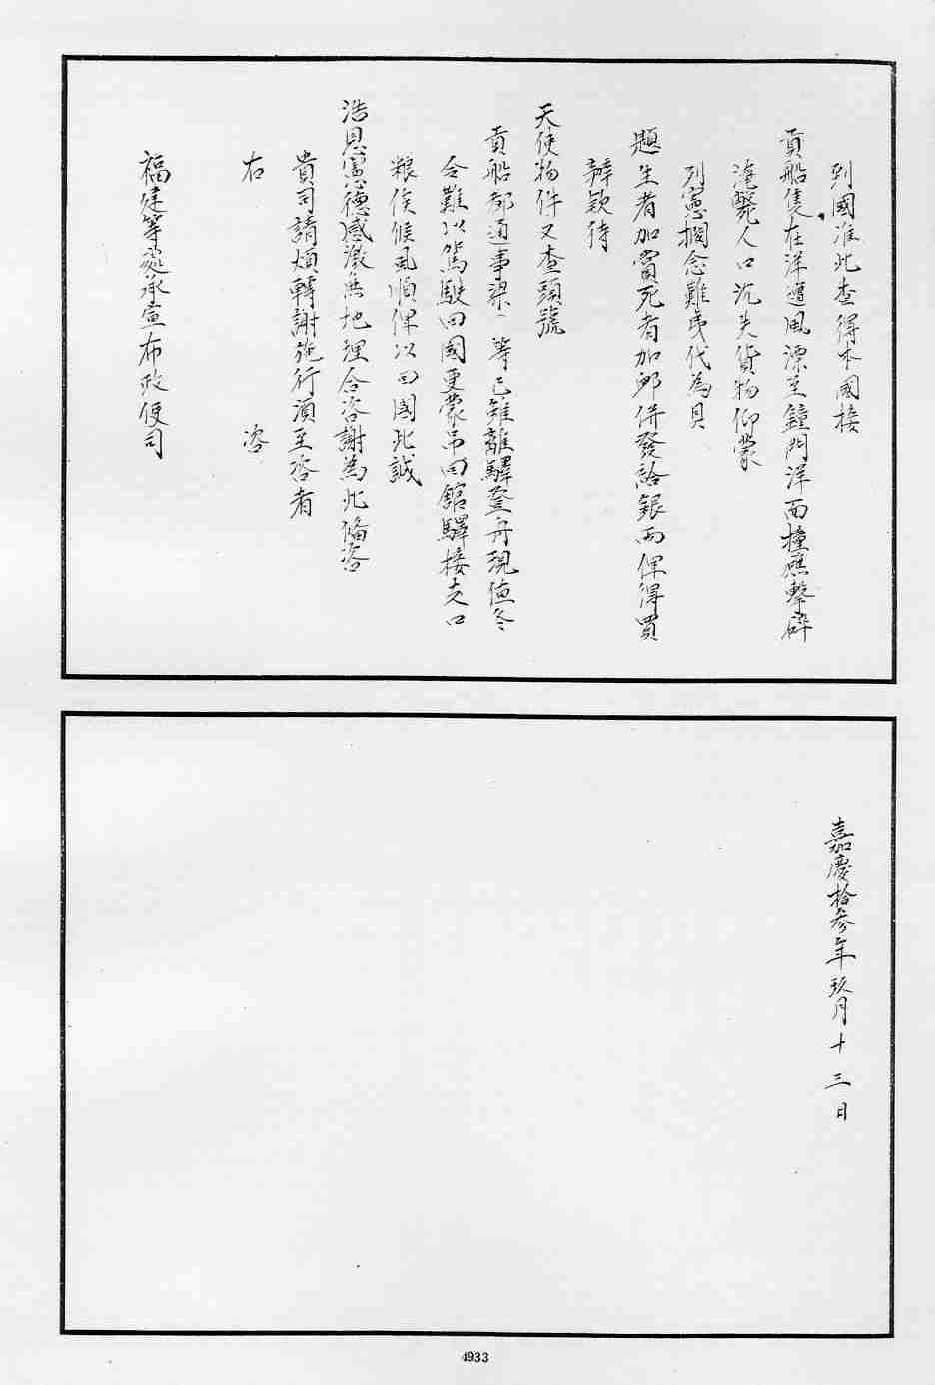 到國准此查得本國接
貢船隻在洋遭風漂至鐘門洋面撞礁擊碎
淹斃人口沉失貨物仰蒙
列憲憫念難夷代為具
題生者加賞死者加卹併發給銀兩俾得買
辦欵待
天使物件又查頭號
貢船都通事梁等已離驛登舟現值冬
令難以駕駛回國更蒙吊回館驛接支口
粮俟候風順俾以回國此誠
浩恩憲德感激無地理合咨謝為此備咨
貴司請煩轉謝施行須至咨者
右 咨
福建等處承宣布政使司
嘉慶拾叁年玖月十三日
4933